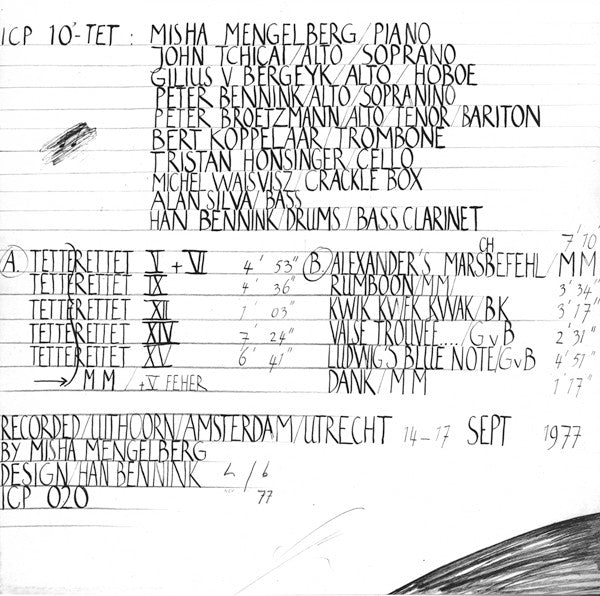 ICP 10'-TET : MISHA MENGELBERG/PIANO
JOHN TCHICAI/ALTO/SOPRANO
GILIUS V BERGEYK/ALTO/HOBOE
PETER BENNINK/ALTO/SOPRANINO
PETER BROETZMANN/ALTO/TENOR/BARITON
BERT KOPPELAAR/TROMBONE
TRISTAN HONSINGER/CELLO
MICHEL WAISVISZ/CRACKLE BOX
ALAN SILVA/BASS
HAN BENNINK/DRUMS/BASS CLARINET
A. TETTERETTET V + VI 4' 53"
TETTERETTET IX 4' 36"
TETTERETTET XII 1' 03"
TETTERETTET XIV 7' 24"
TETTERETTET XV 6' 41"
→ MM / +V FEHER
B. ALEXANDER'S MARSCHBEFEHL/MM 7'10'
RUMBOON/MM/ 3'34"
KWIK KWEK KWAK/BK 3'17"
VALSE TROUVEE..../GvB 2'31"
LUDWIG'S BLUE NOTE/GvB 4'51"
DANK/MM 1'17"
RECORDED/UITHOORN/AMSTERDAM/UTRECHT 14-17 SEPT 1977
BY MISHA MENGELBERG
DESIGN/HAN BENNINK
77
ICP 020